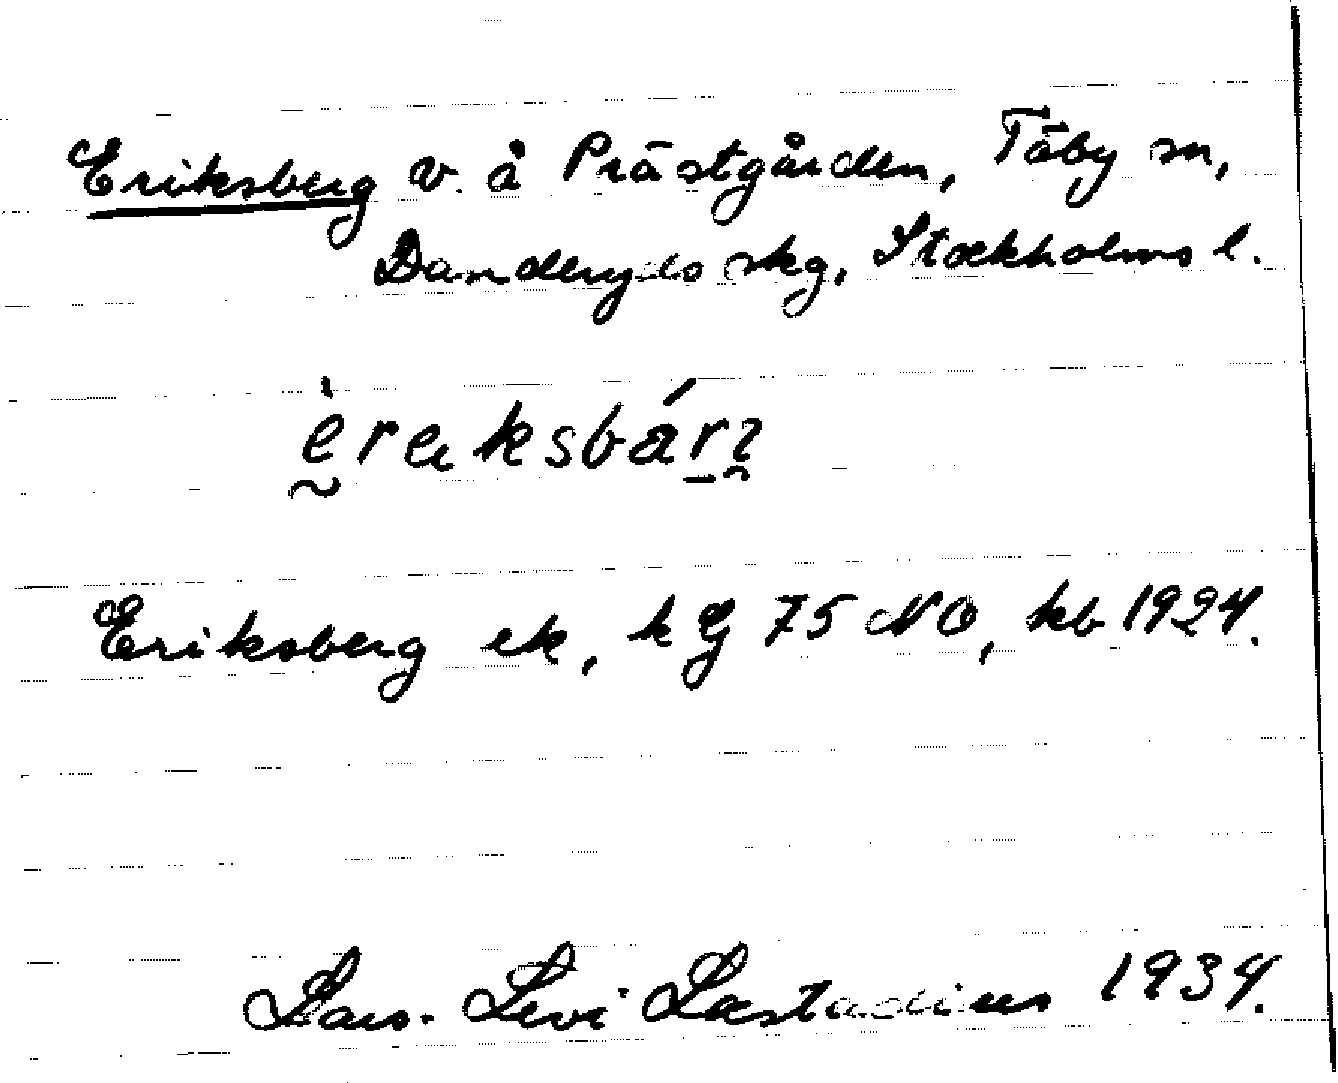 Eriksberg v. å Prästgården, Täby sn,
Danderyds skg, Stockholms l.
èreksbárʒ
Eriksberg ek, k G 75 NO, kb 1924.
Lars-Levi Læstadius 1934.